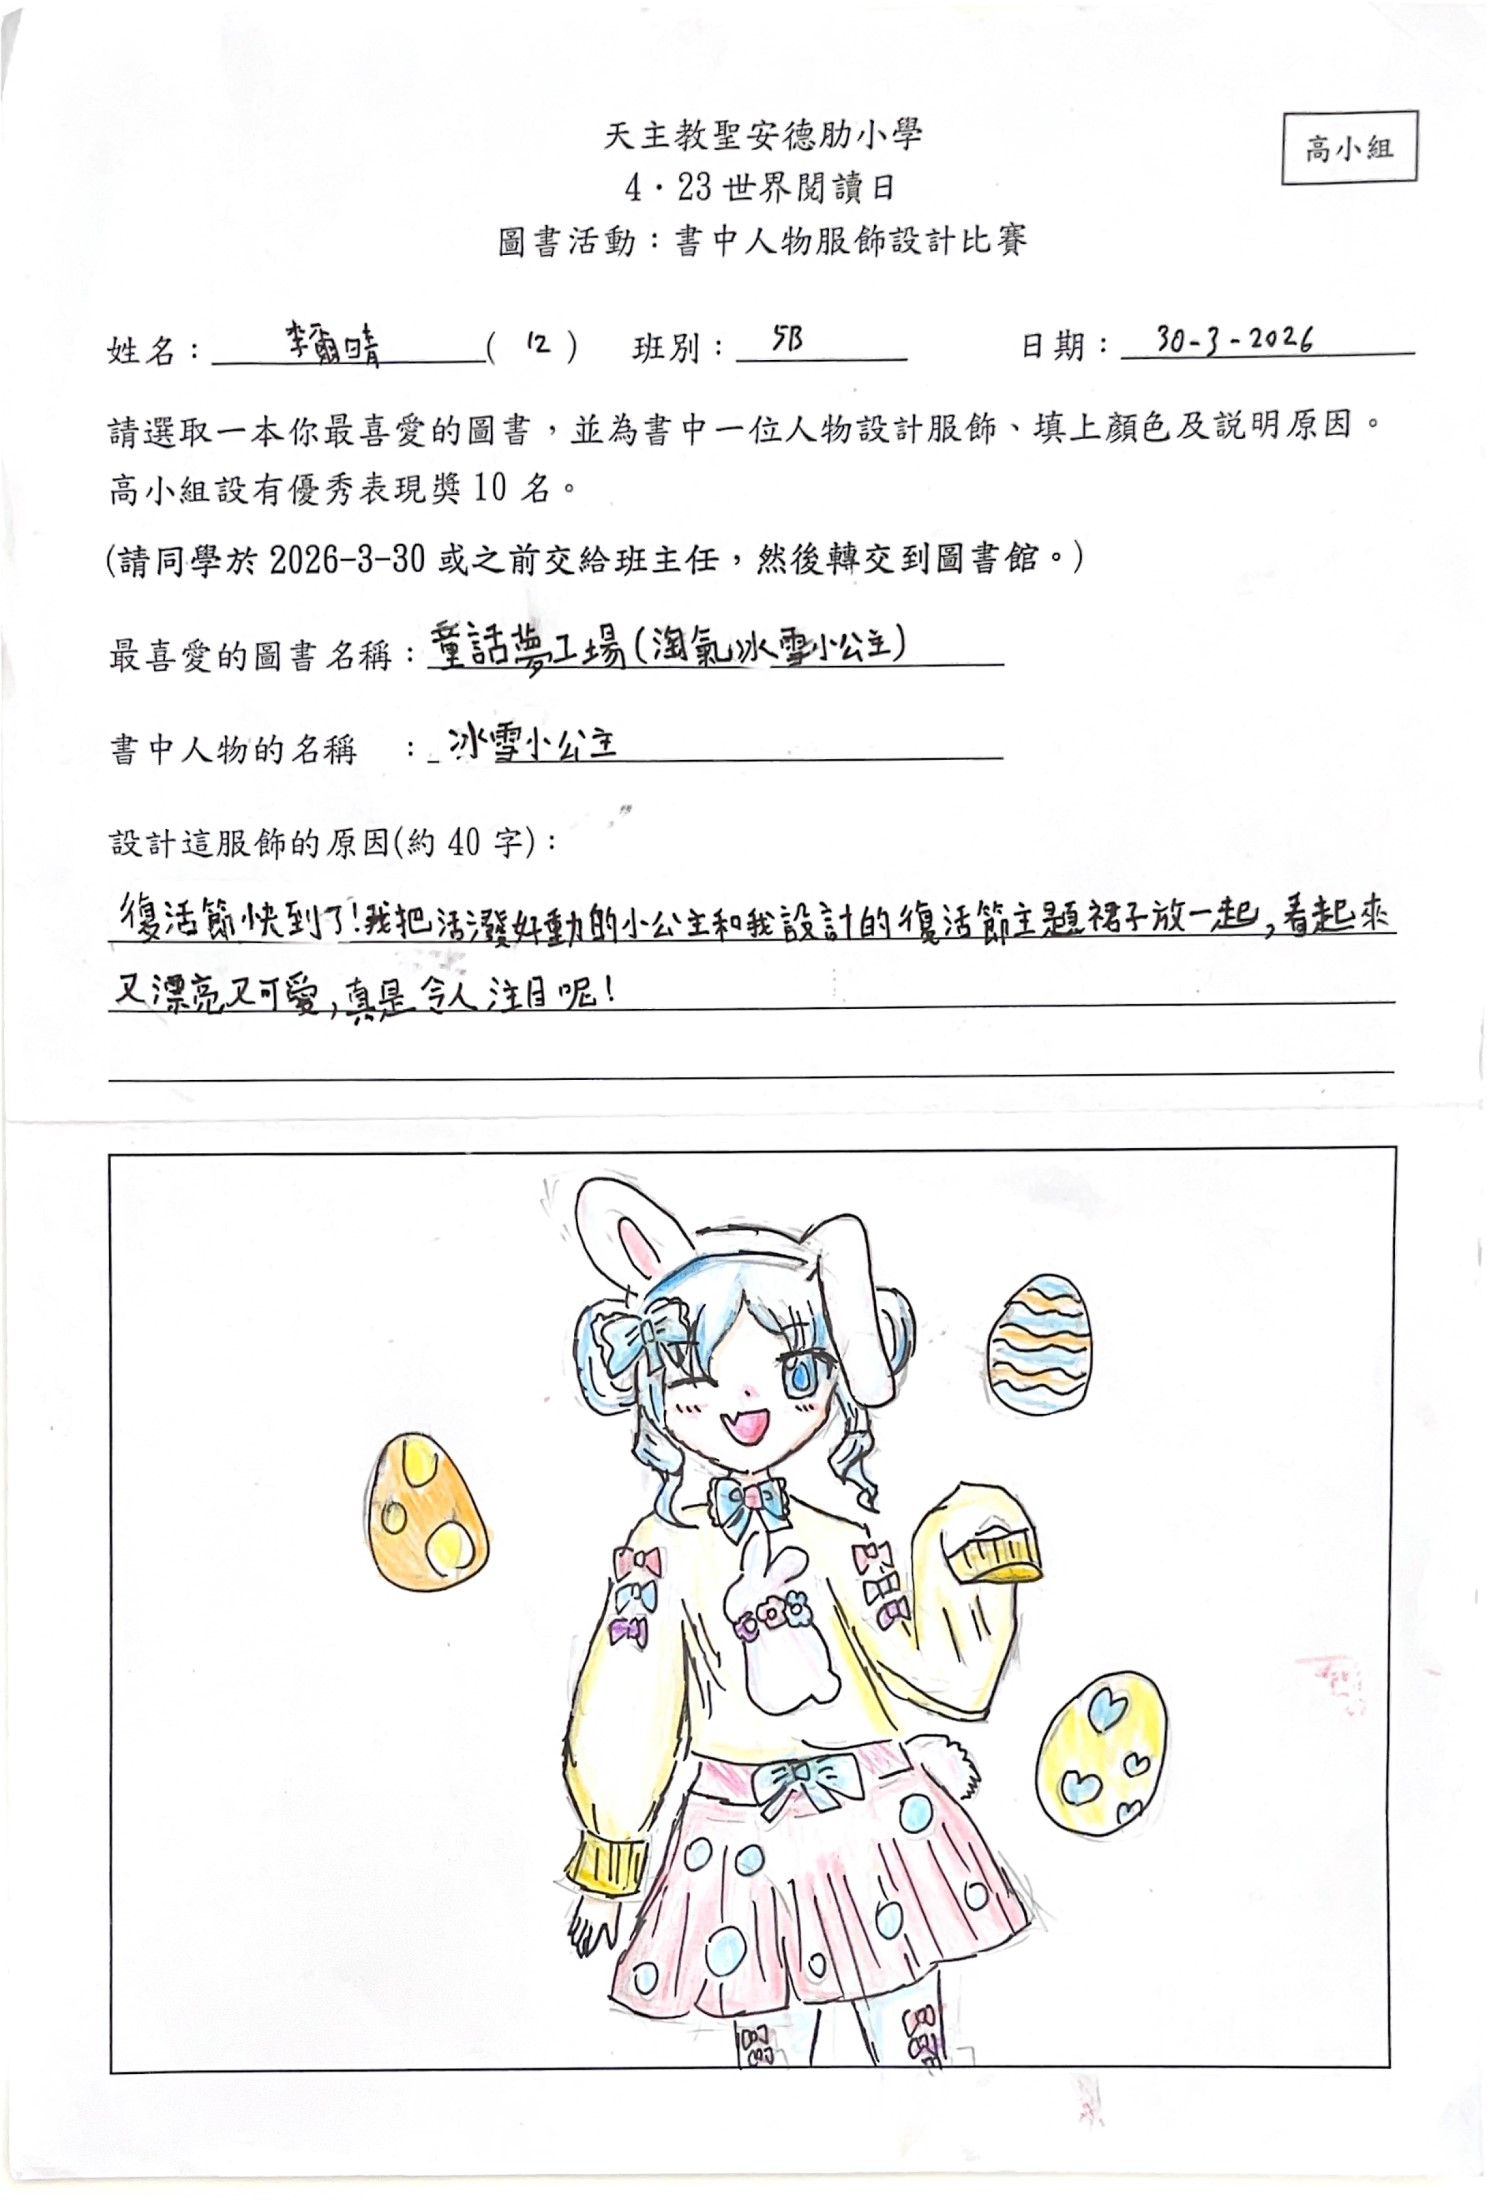 天主教聖安德肋小學
高小組
4·23 世界閱讀日
圖書活動：書中人物服飾設計比賽
姓名：李爾晴 ( 12 ) 班別：5B 日期：30-3-2026
請選取一本你最喜愛的圖書，並為書中一位人物設計服飾、填上顏色及説明原因。
高小組設有優秀表現獎 10 名。
(請同學於 2026-3-30 或之前交給班主任，然後轉交到圖書館。)
最喜愛的圖書名稱：童話夢工場(淘氣冰雪小公主)
書中人物的名稱 ：冰雪小公主
設計這服飾的原因(約 40 字)：
復活節快到了!我把活潑好動的小公主和我設計的復活節主題裙子放一起,看起來
又漂亮又可愛,真是令人注目呢!